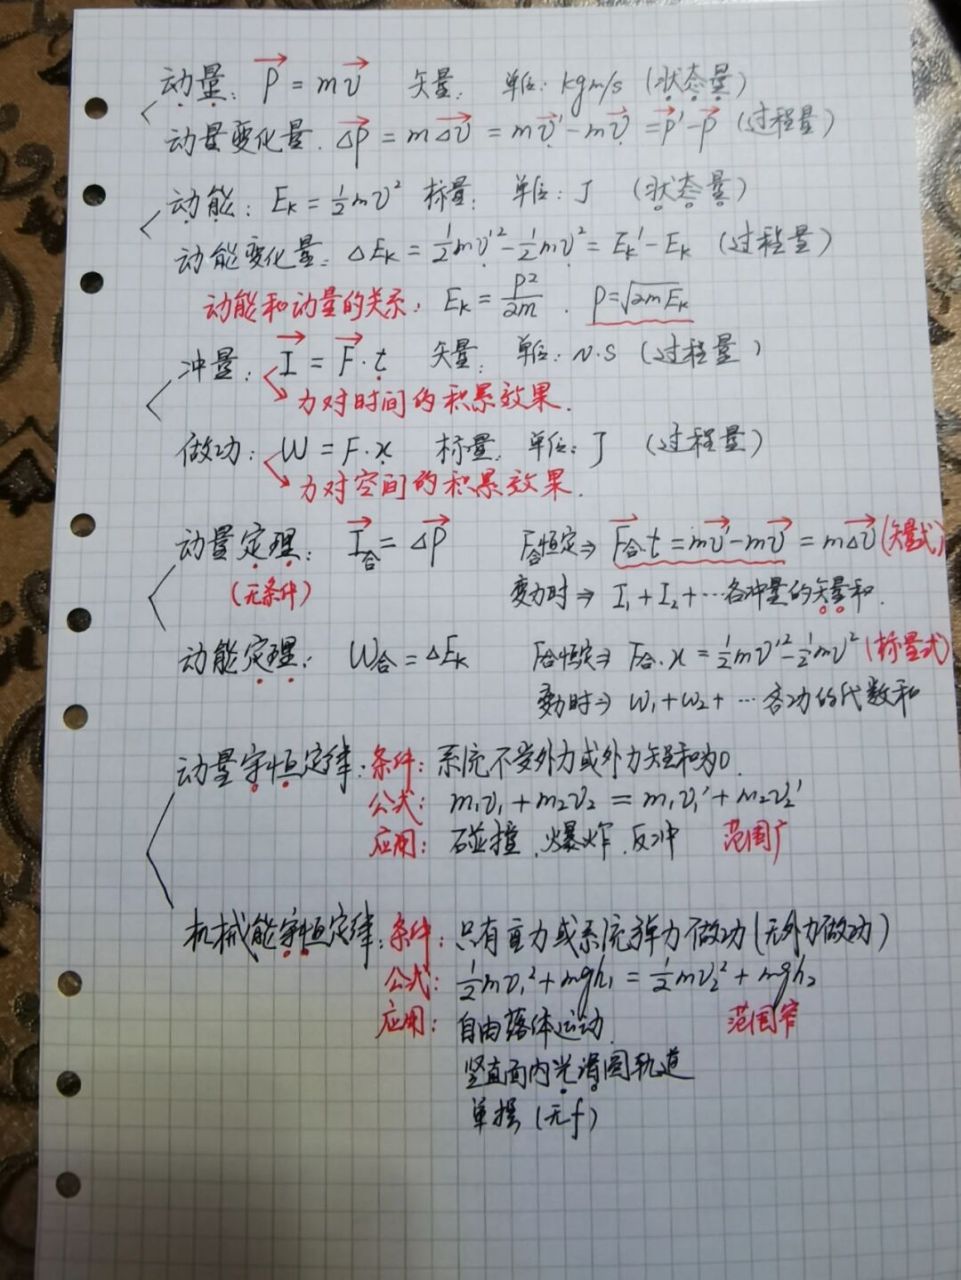 动量: p = mv 矢量. 单位: kgm/s (状态量)
动量变化量. Δp = mΔv = mv' - mv = p' - p (过程量)
动能: Eₖ = ½mv² 标量. 单位: J (状态量)
动能变化量: ΔEₖ = ½mv'² - ½mv² = Eₖ' - Eₖ (过程量)
动能和动量的关系: Eₖ = P²/2m . P = √2mEₖ
冲量: I = F·t 矢量. 单位: N·S (过程量)
力对时间的积累效果.
做功: W = F·x 标量. 单位: J (过程量)
力对空间的积累效果.
动量定理: I合 = ΔP F合恒定⇒ F合·t = mv' - mv = mΔv (矢量式)
(无条件) 变力时⇒ I₁ + I₂ + …各冲量的矢量和.
动能定理: W合 = ΔEₖ F合恒定⇒ F合·x = ½mv'² - ½mv² (标量式)
变力时⇒ W₁ + W₂ + …各功的代数和
动量守恒定律: 条件: 系统不受外力或外力矢量和为0.
公式: m₁v₁ + m₂v₂ = m₁v₁' + m₂v₂'
应用: 碰撞、爆炸、反冲 范围广
机械能守恒定律: 条件: 只有重力或系统弹力做功(无外力做功)
公式: ½mv₁² + mgh₁ = ½mv₂² + mgh₂
应用: 自由落体运动. 范围窄
竖直面内光滑圆轨道
单摆 (无f)